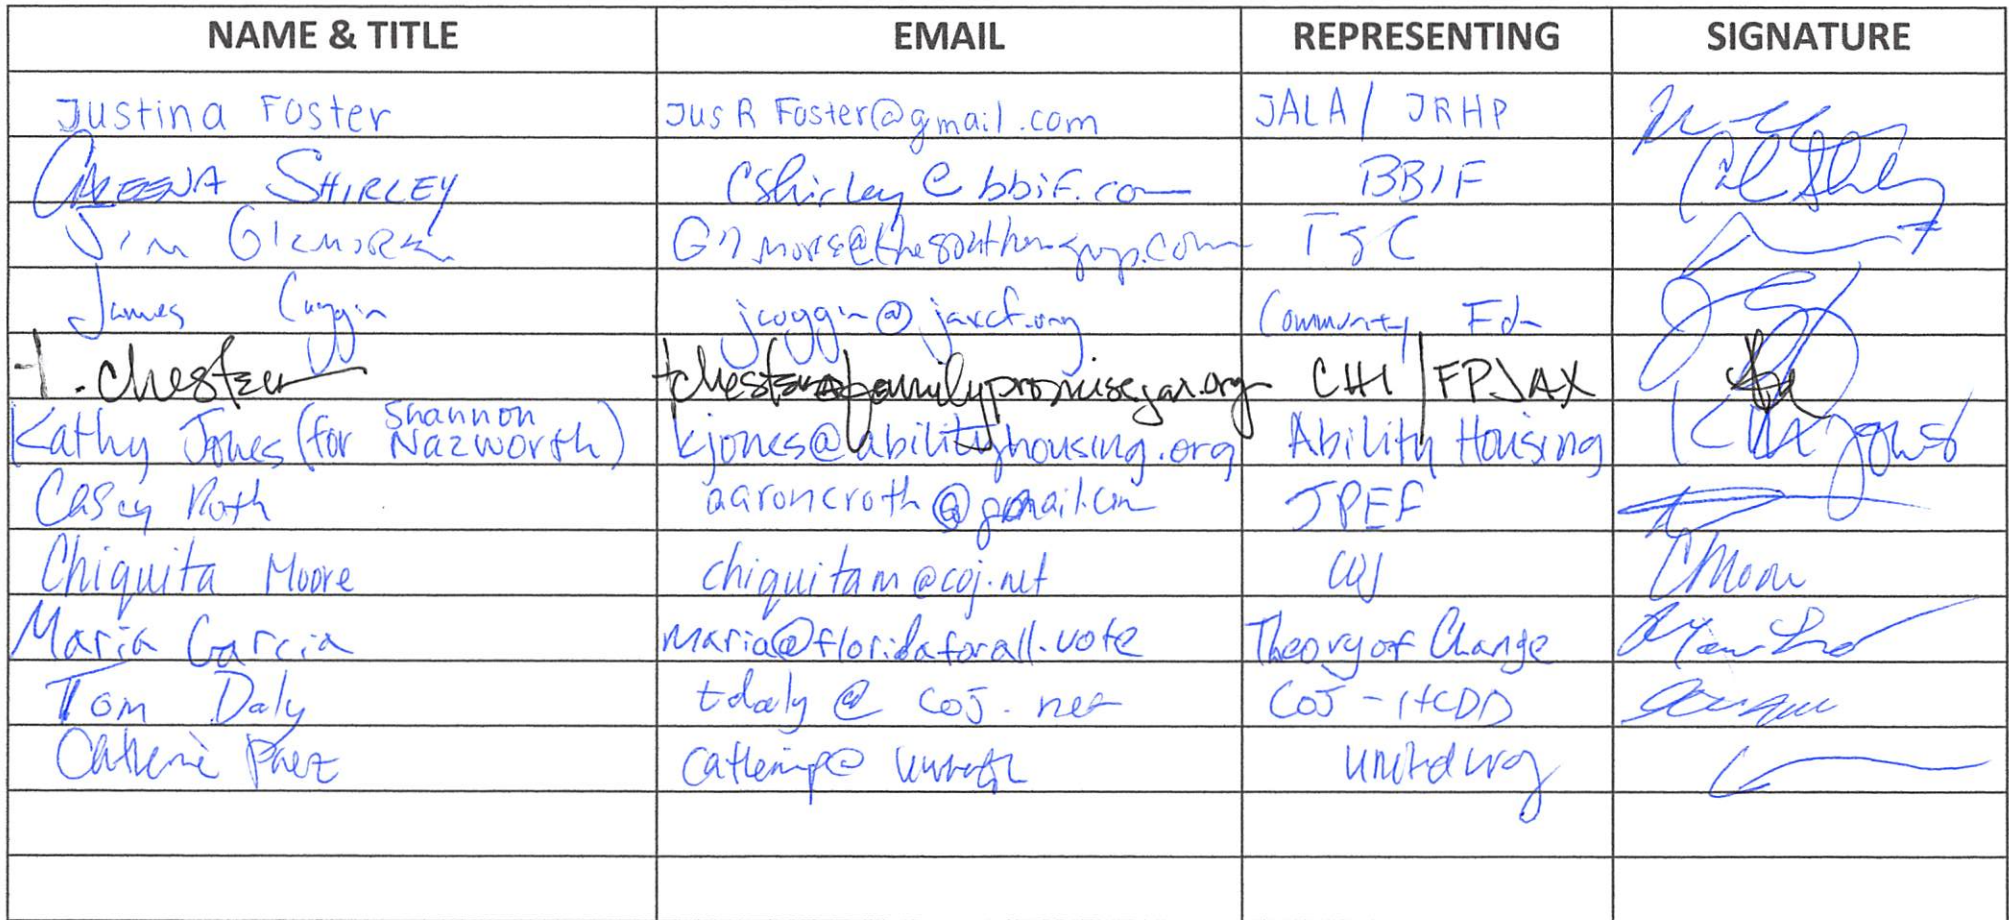 NAME & TITLE EMAIL REPRESENTING SIGNATURE
Justina Foster JusRFoster@gmail.com JALA/ JRHP
SHIRLEY cshirley@bbif.com BBIF
Jim Gilmore TSC
James Coggin jcoggin@jaxcf.org Community Fdn
T. Chester tchester@familypromisejax.org CHI/FPJAX
Kathy Jones (for Shannon Nazworth) kjones@abilityhousing.org Ability Housing
Casey Roth aaroncroth@gmail.com JPEF
Chiquita Moore chiquitam@coj.net COJ CMoore
Maria Garcia maria@floridaforall.vote Theory of Change
Tom Daly tdaly@coj.net COJ-HCDD
Paez United Way